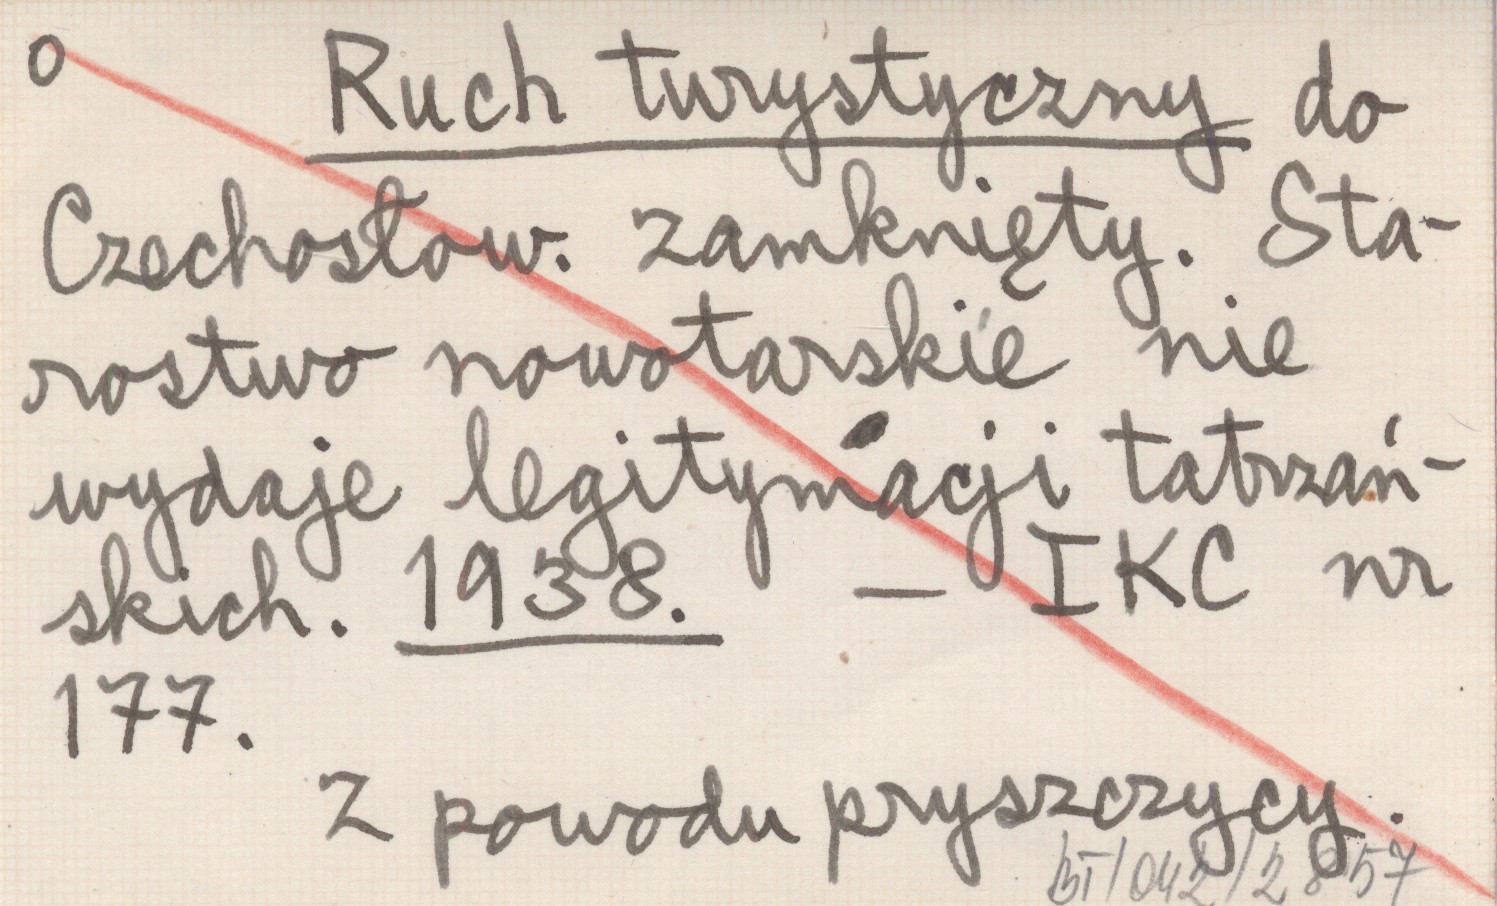 o Ruch turystyczny do
Czechosłow. zamknięty. Sta-
rostwo nowotarskie nie
wydaje legitymacji tatrzań-
skich. 1938. — IKC nr
177.
Z powodu pryszczycy.
BT/042/2857